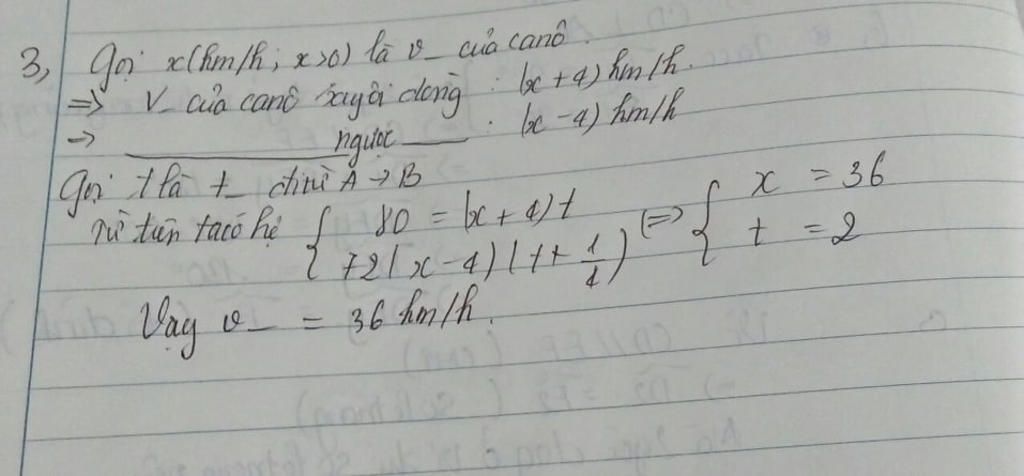 3, Gọi x(km/h; x>0) là v_ của canô.
=> V_ của canô xuôi dòng : (x+4) km/h.
-> ngược : (x-4) km/h
Gọi t là t_ đi từ A -> B
Từ trên ta có hệ { 80 = (x+4)t <=> { x = 36
72(x-4)(t+1/4) t = 2
Vậy v_ = 36 km/h.